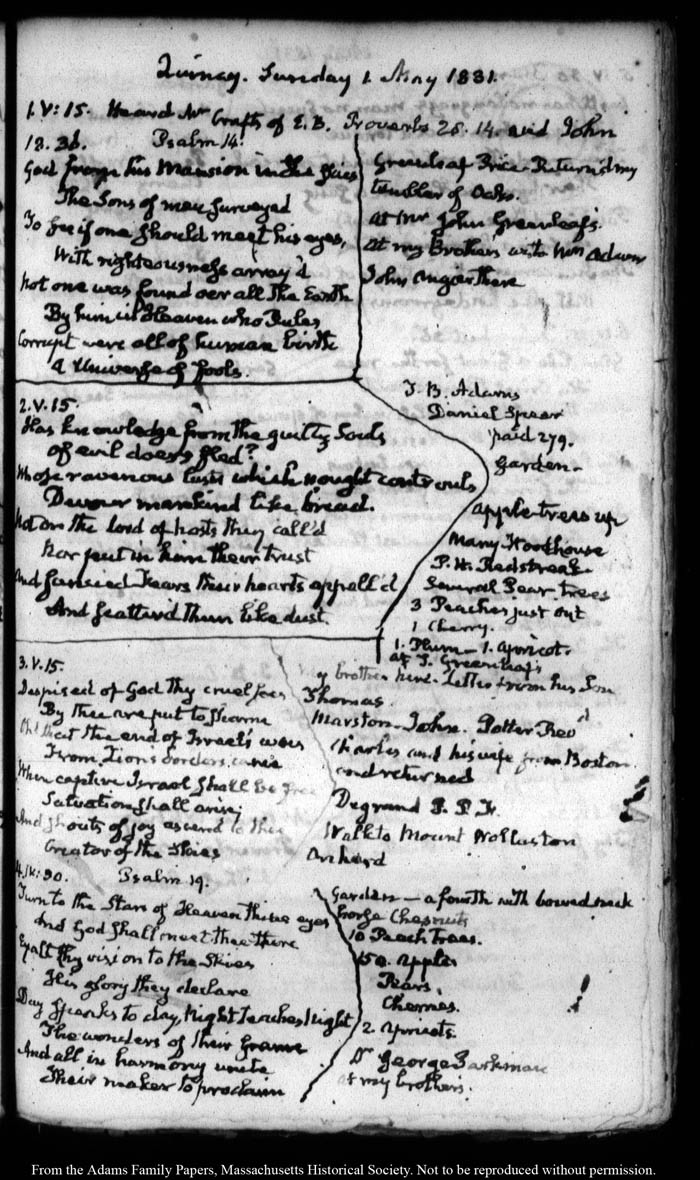 Quincy. Sunday 1. May 1831.
1. V: 15. Heard Mr Crafts of E. B. Proverbs 26. 14. and John
18. 36. Psalm 14.
God from his Mansion in the Skies
The Sons of men surveyed
To see if one should meet his eyes,
With righteousness array'd
Not one was found oer all the Earth
By him in Heaven who Rules
Corrupt were all of human birth
A Universe of fools.
Greenleaf Price Returned my
tumbler of Oaks.
at Mr John Greenleaf's.
At my Brothers with Wm Adams
John Angier there
2. V. 15.
Has knowledge from the guilty Souls
of evil doers fled?
Whose ravenous lusts which nought controuls
Devour mankind like bread.
Not on the Lord of hosts they call'd
Nor put in him their trust
And fancied Fears their hearts appall'd
And scatter'd them like dust.
T. B. Adams
Daniel Spear
paid 279.
Garden—
apple trees up
Many Woodhouse
P. H. Redstreak
Several Pear trees
3 Peaches just out
1 Cherry.
1. Plum — 1. Apricot.
at J. Greenleaf's
3. V. 15.
Despised of God thy cruel foes
By thee are put to shame
Oh! that the end of Israel's woes
From Zion's borders came
When captive Israel shall be free
Salvation shall arise;
And shouts of joy ascend to thee
Creator of the Skies
my brother here. Letter from his Son
Thomas.
Marston. John. Potter Recd
Charles and his wife from Boston
and returned
Degrand P. P. F.
Walk to Mount Wollaston
Orchard
4. IV: 30. Psalm 19.
Turn to the Stars of Heaven thine eyes
And God shall meet thee there
Exalt thy vision to the Skies
His glory they declare
Day speaks to day, Night teaches Night
The wonders of their frame
And all in harmony unite
Their maker to proclaim
Garden — a fourth with bowed neck
horse Chesnuts
10 Peach Trees.
150. Apples
Pears.
Cherries.
2 Apricots.
Dr George Parkman
at my brothers.
From the Adams Family Papers, Massachusetts Historical Society. Not to be reproduced without permission.